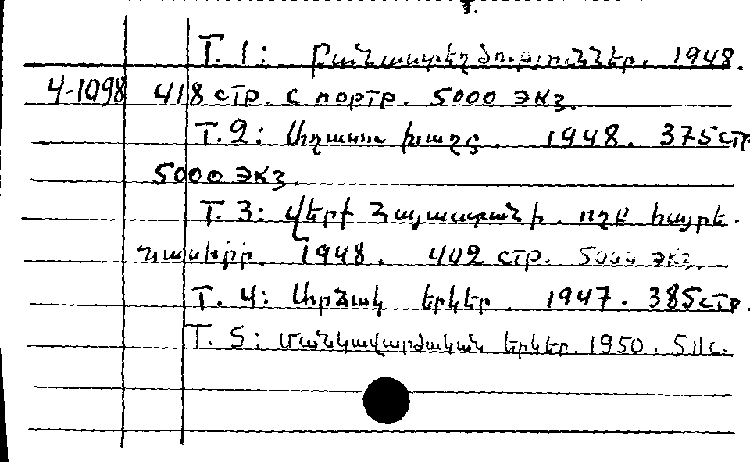 Т. 1: Բանաստեղծություններ. 1948.
4-1098 418 стр. с портр. 5000 экз.
Т. 2: խաղը. 1948. 375 стр
5000 экз.
Т. 3: Վերք Հայաստանի. ողբ հայրե-
նասիրի. 1948. 402 стр. 5000 экз.
Т. 4: Արձակ երկեր. 1947. 385 стр.
Т. 5: Մանկավարժական երկեր. 1950. 511 с.